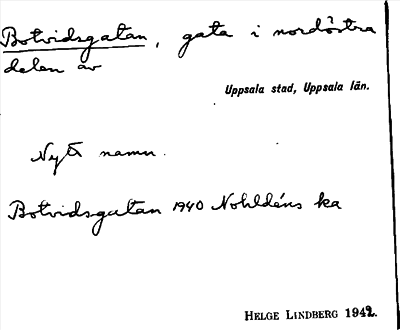 Botvidsgatan, gata i nordöstra
delen av
Uppsala stad, Uppsala län.
Nytt namn.
Botvidsgatan 1940 Nohldéns ka
HELGE LINDBERG 1942.